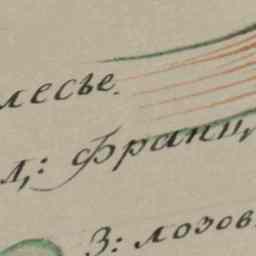 лесье.
л,: Франц,
З: лозов